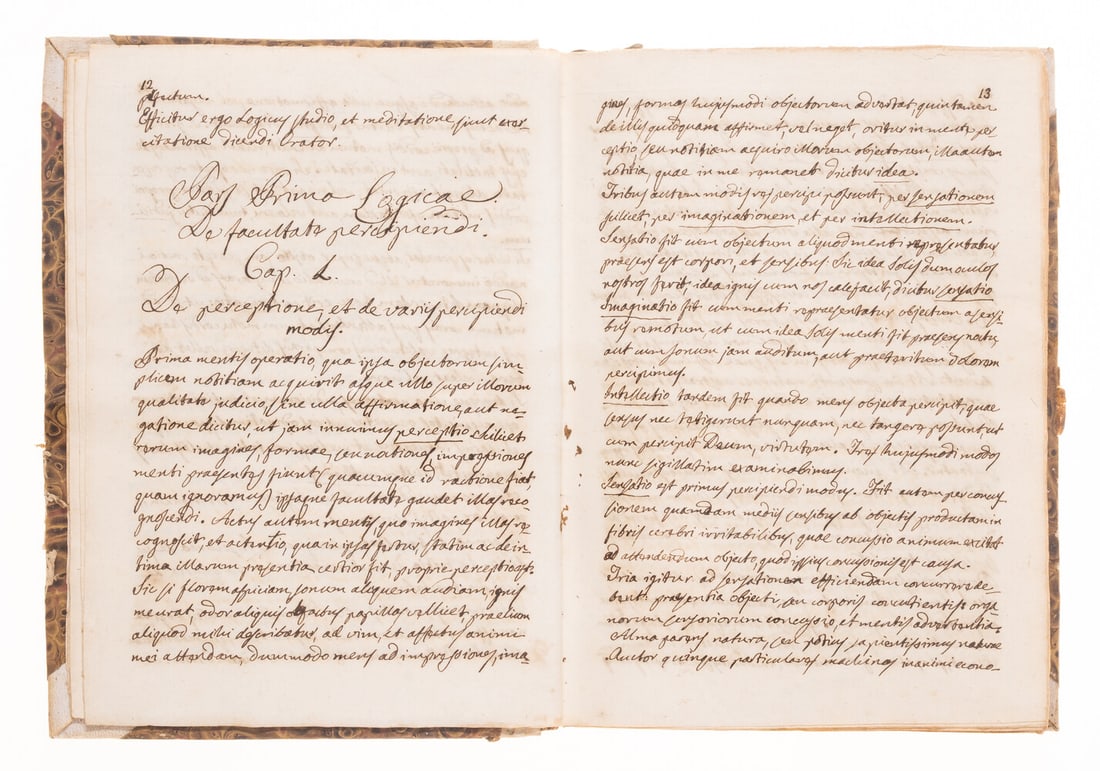 12
effectum.
Efficitur ergo Logicus studio, et meditatione sicut exer-
citatione dicendi Orator.
Pars Prima Logicae.
De facultate percipiendi.
Cap. I.
De perceptione, et de variis percipiendi
modis.
Prima mentis operatio, qua ipsa objectorum sim-
plicem notitiam acquirit absque ullo super illorum
qualitate judicio, sine ulla affirmatione, aut ne-
gatione dicitur ut jam innuimus perceptio scilicet
rerum imagines, formae, seu notiones impressiones
menti praesentes fiunt quacumque id ratione fiat,
quam ignoramus ipsaque facultate gaudet illas reco-
gnoscendi. Actus autem mentis, quo imagines illas re-
cognoscit, et actentio, qua in ipsas fertur, statim ac de in-
tima illarum presentia certior fit, proprie perceptio est.
Sic si florem aspiciam, sonum aliquem audiam, ignis
me urat, odor aliquis olfactus papillas vellicet, praelium
aliquod mihi describatur, ad vim, et affectus animi
mei attendam, dummodo mens ad impressiones, ima-
13
gines, formas hujusmodi objectorum advertat, quin tamen
de illis quidquam affirmet, vel neget, oritur in mente per-
ceptio, seu notitiam acquiro illorum objectorum, illa autem
notitia, quae in me remanet dicitur idea.
Tribus autem modis res percipi possunt, per sensationem
scilicet, per imaginationem, et per intellectionem.
Sensatio fit cum objectum aliquod menti repraesentatur,
praesens est corpori, et sensibus. Sic idea Solis dum oculos
nostros ferit, idea ignis cum nos calefacit, dicitur sensatio
Imaginatio fit cum menti repraesentatur objectum a sensi-
bus remotum ut cum idea Solis menti fit praesens noctu,
aut cum sonum jam auditum, aut praeteritum dolorem
percipimus.
Intellectio tandem fit quando mens objecta percipit, quae
sensus nec tetigerunt nunquam, nec tangere possunt, ut
cum percipit Deum, virtutem. Tres hujusmodi modos
nunc sigillatim examinabimus.
Sensatio est primus percipiendi modus. Fit autem per concus-
sionem quamdam mediis sensibus ab objectis productam in
fibris cerebri irritabilibus, quae concussio animum excitat
ad attendendum objecto, quod ipsius concussionis est causa.
Tria igitur ad sensationem efficiendam concurrere de-
bent: praesentia objecti, seu corporis concutientis, orga-
norum sensoriorum concussio, et mentis advertentia.
Alma parens natura, seu potius sapientissimus naturae
Auctor quinque particulares machinas in animi econo-